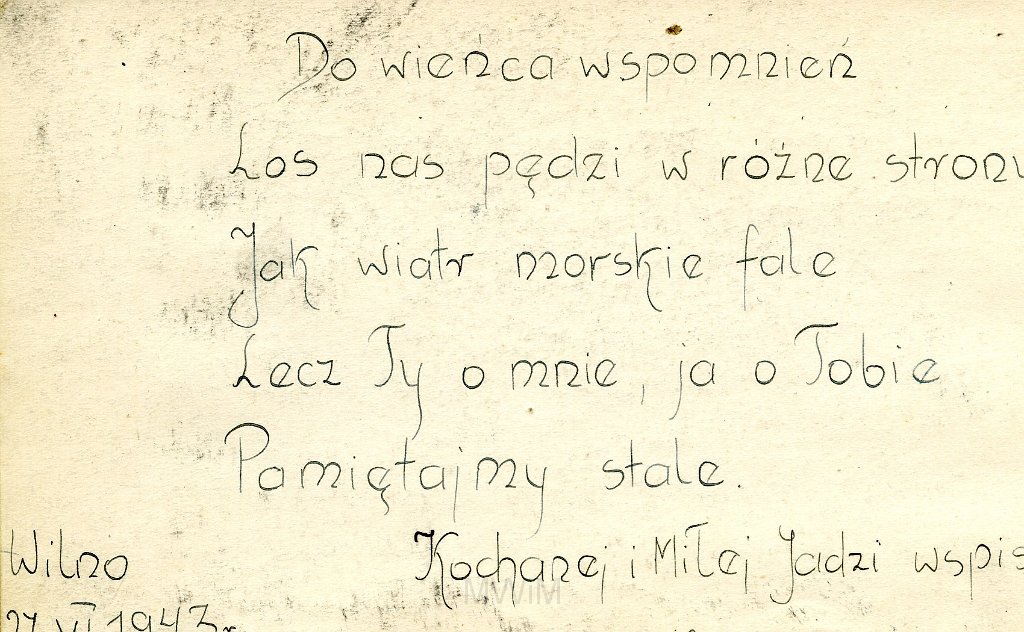 Do wieńca wspomnień
Los nas pędzi w różne strony
Jak wiatr morskie fale
Lecz Ty o mnie, ja o Tobie
Pamiętajmy stale.
Wilno
Kochanej i Miłej Jadzi wspis
VI 1943 r.
MWIM